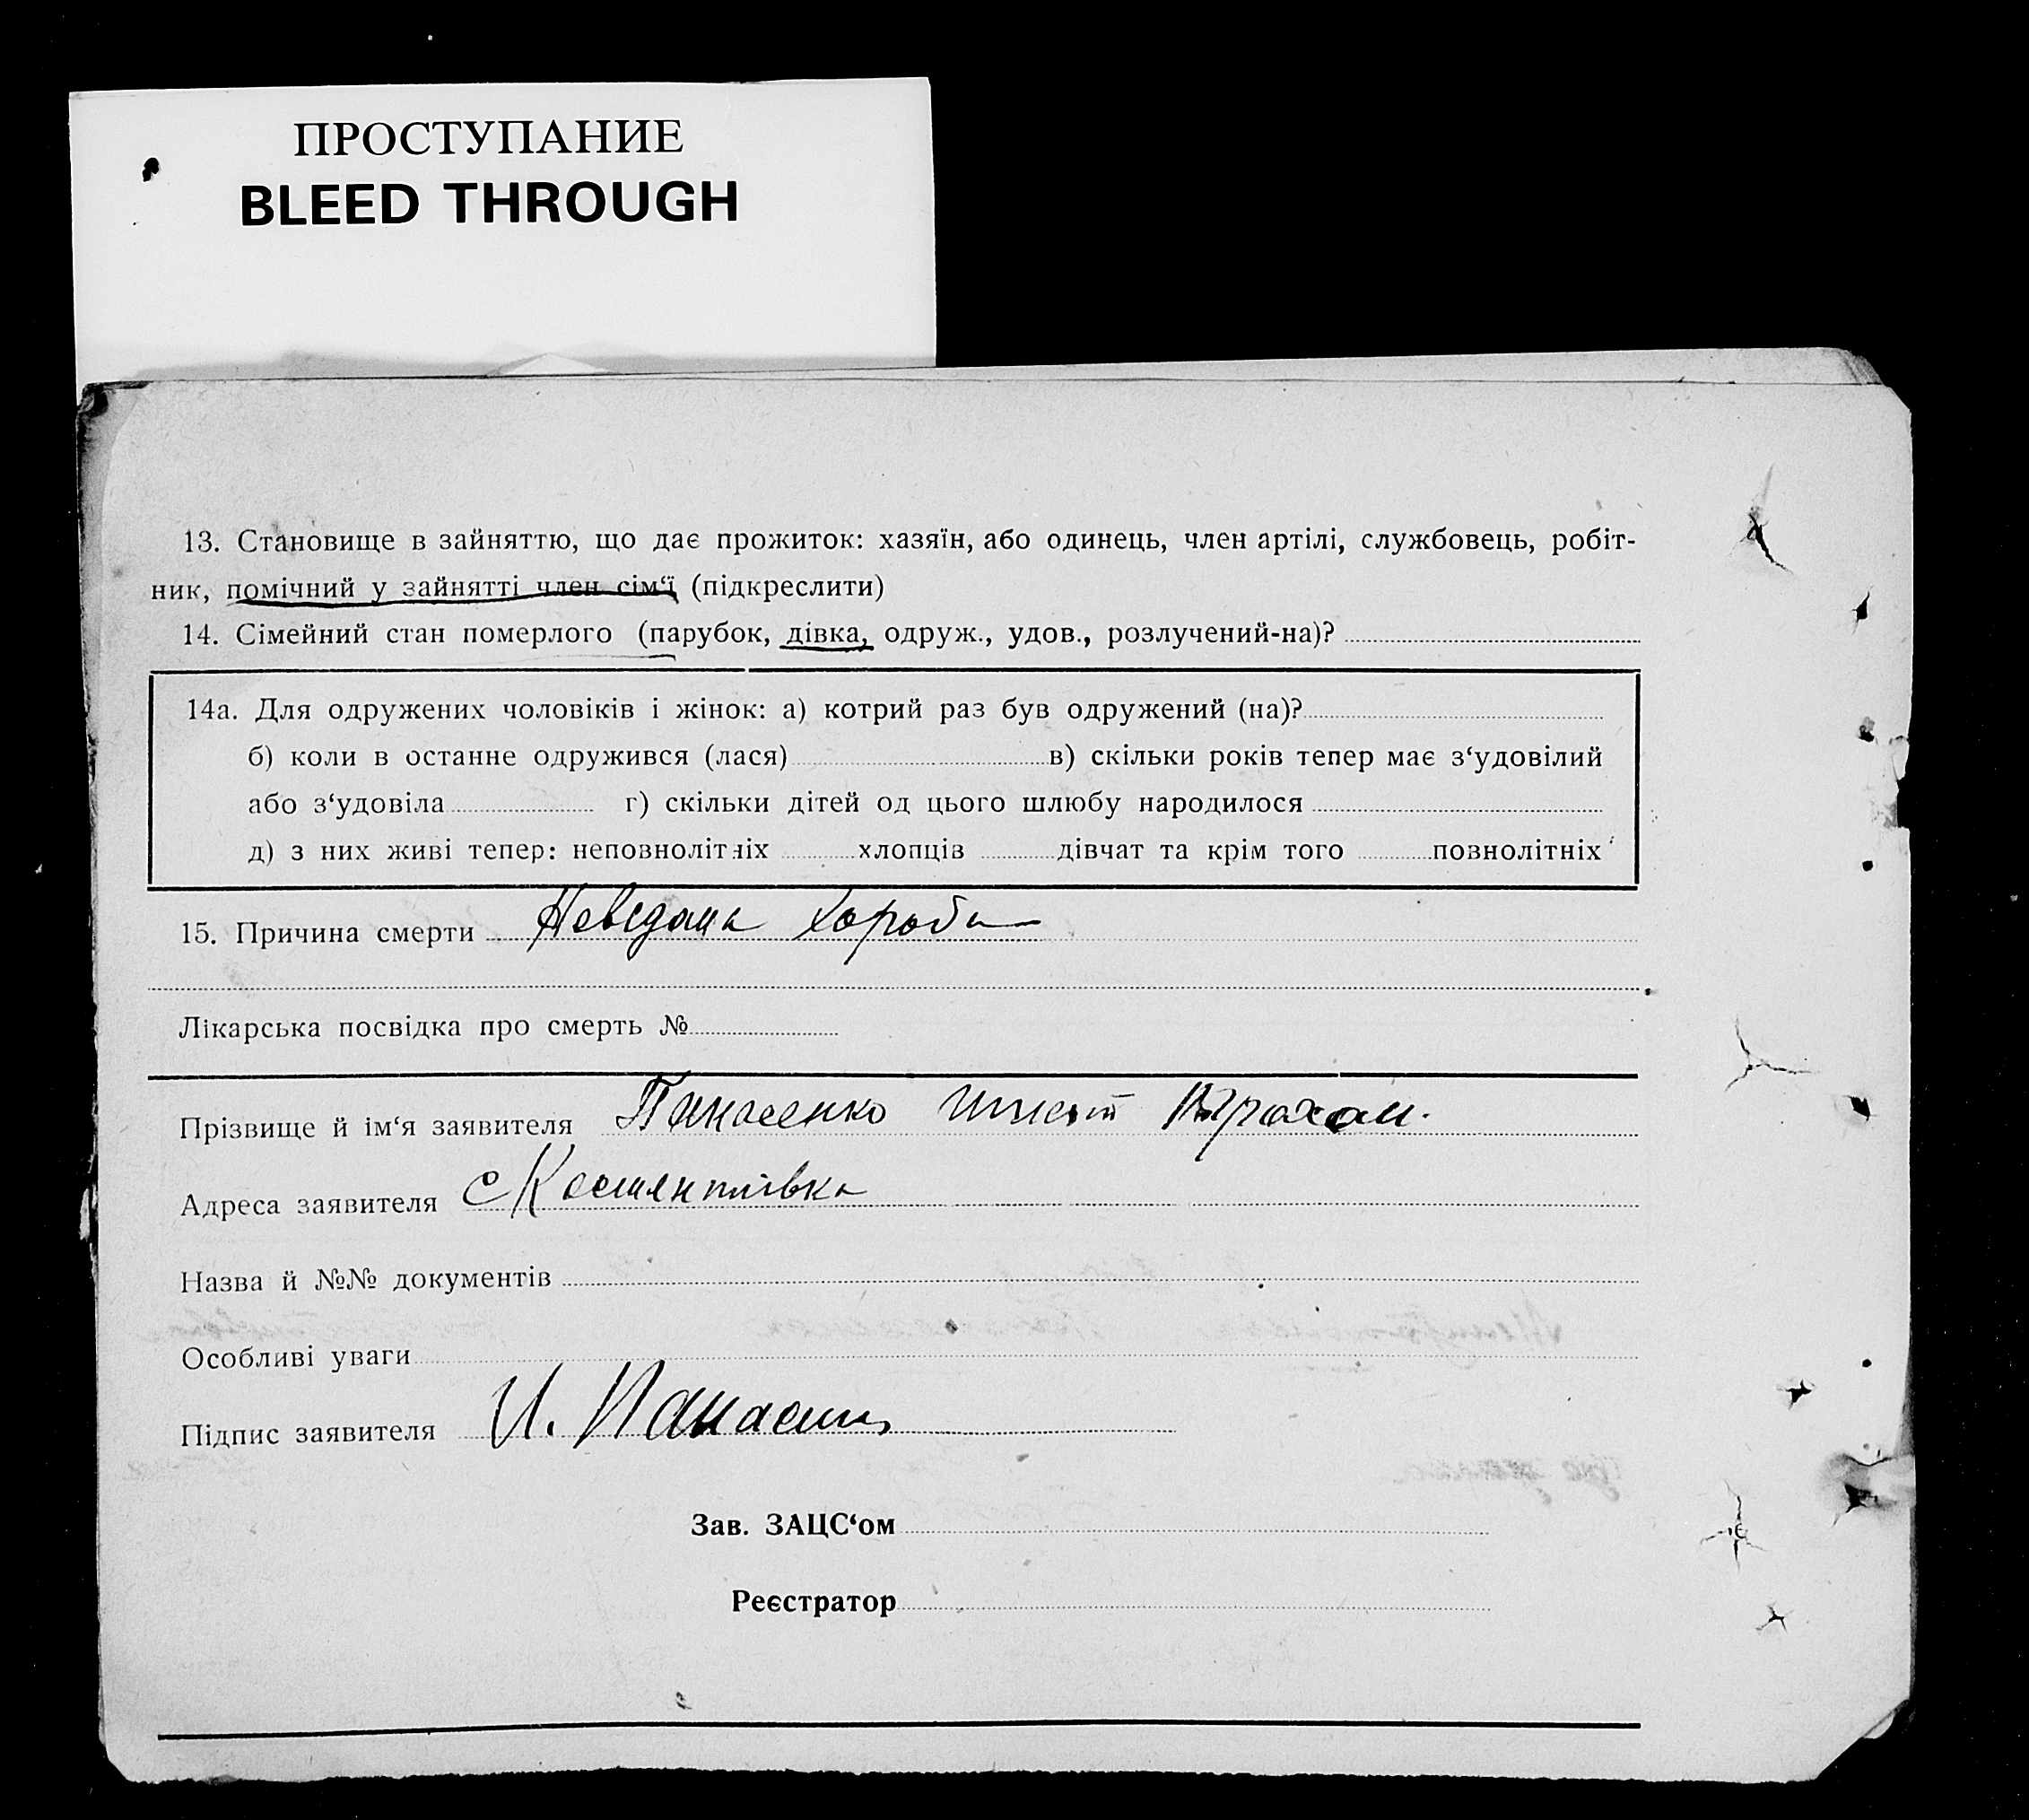 ПРОСТУПАНИЕ
BLEED THROUGH
13. Становище в зайняттю, що дає прожиток: хазяїн, або одинець, член артілі, службовець, робіт-
ник, помічний у зайнятті член сім‘ї (підкреслити)
14. Сімейний стан померлого (парубок, дівка, одруж., удов., розлучений-на)?
14а. Для одружених чоловіків і жінок: а) котрий раз був одружений (на)?
б) коли в останне одружився (лася) в) скільки років тепер має з‘удовілий
або з‘удовіла г) скільки дітей од цього шлюбу народилося
д) з них живі тепер: неповнолітніх хлопців дівчат та крім того повнолітніх
15. Причина смерти Невідома хороба
Лікарська посвідка про смерть №
Прізвище й ім‘я заявителя Панасенко
Адреса заявителя с Костянтівка
Назва й №№ документів
Особливі уваги
Підпис заявителя И.
Зав. ЗАЦС‘ом
Реєстратор